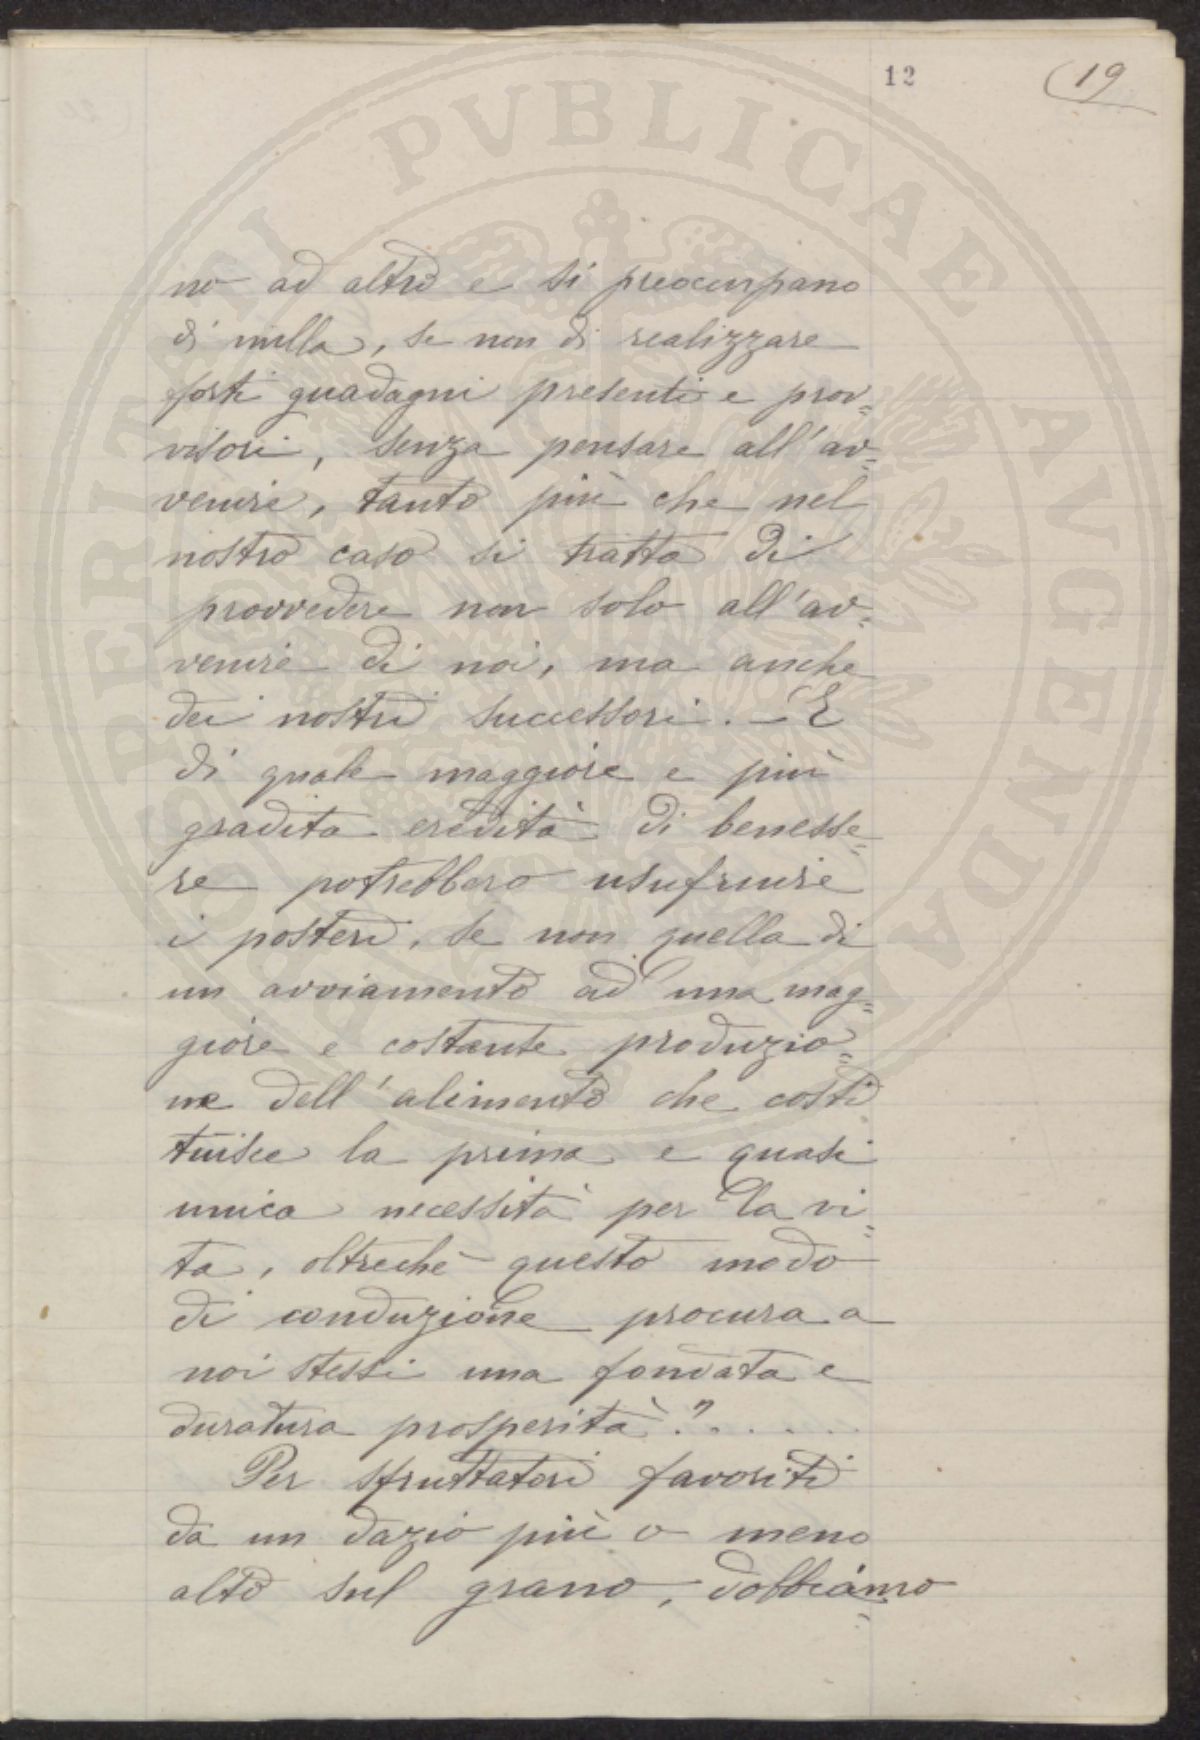 12
19
PROSPERITATI PVBLICAE AVGENDAE
no ad altro e si preoccupano
di nulla, se non di realizzare
forti guadagni presenti e prov=
visori, senza pensare all'av=
venire, tanto più che nel
nostro caso si tratta di
provvedere non solo all'av=
venire di noi, ma anche
dei nostri successori. – E
di quale maggiore e più
gradita eredità di benesse=
re potrebbero usufruire
i posteri, se non quella di
un avviamento ad una mag=
giore e costante produzio=
ne dell'alimento che costi
tuisce la prima e quasi
unica necessità per la vi=
ta, oltrechè questo modo
di conduzione procura a
noi stessi una fondata e
duratura prosperità?......
Per sfruttatori favoriti
da un dazio più o meno
alto sul grano, dobbiamo